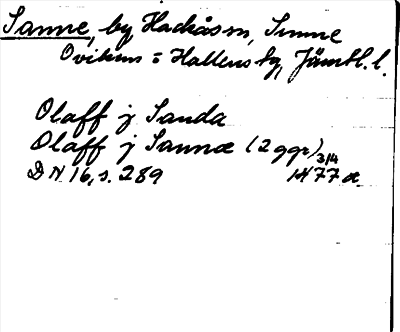 Sanne, by Hackåsm, Sunne
Ovikens o Hallens tg, Jämtl. l.
Olaff j Sanda
Olaff j Sannæ (2 ggr) 3/4
DN 16, s. 289 1477 a